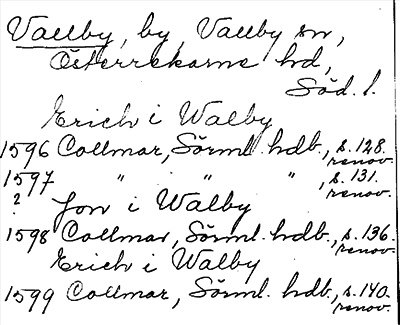 Vallby, by, Vallby sn,
Österrekarne hd,
Söd. l.
Erich i Walby
1596 Collmar, Sörml. hdb., s. 128.
renov.
1597 " " " , s. 131.
renov.
? Jon i Walby
1598 Collmar, Sörml. hdb., s. 136.
renov.
Erich i Walby
1599 Collmar, Sörml. hdb., s. 140.
renov.